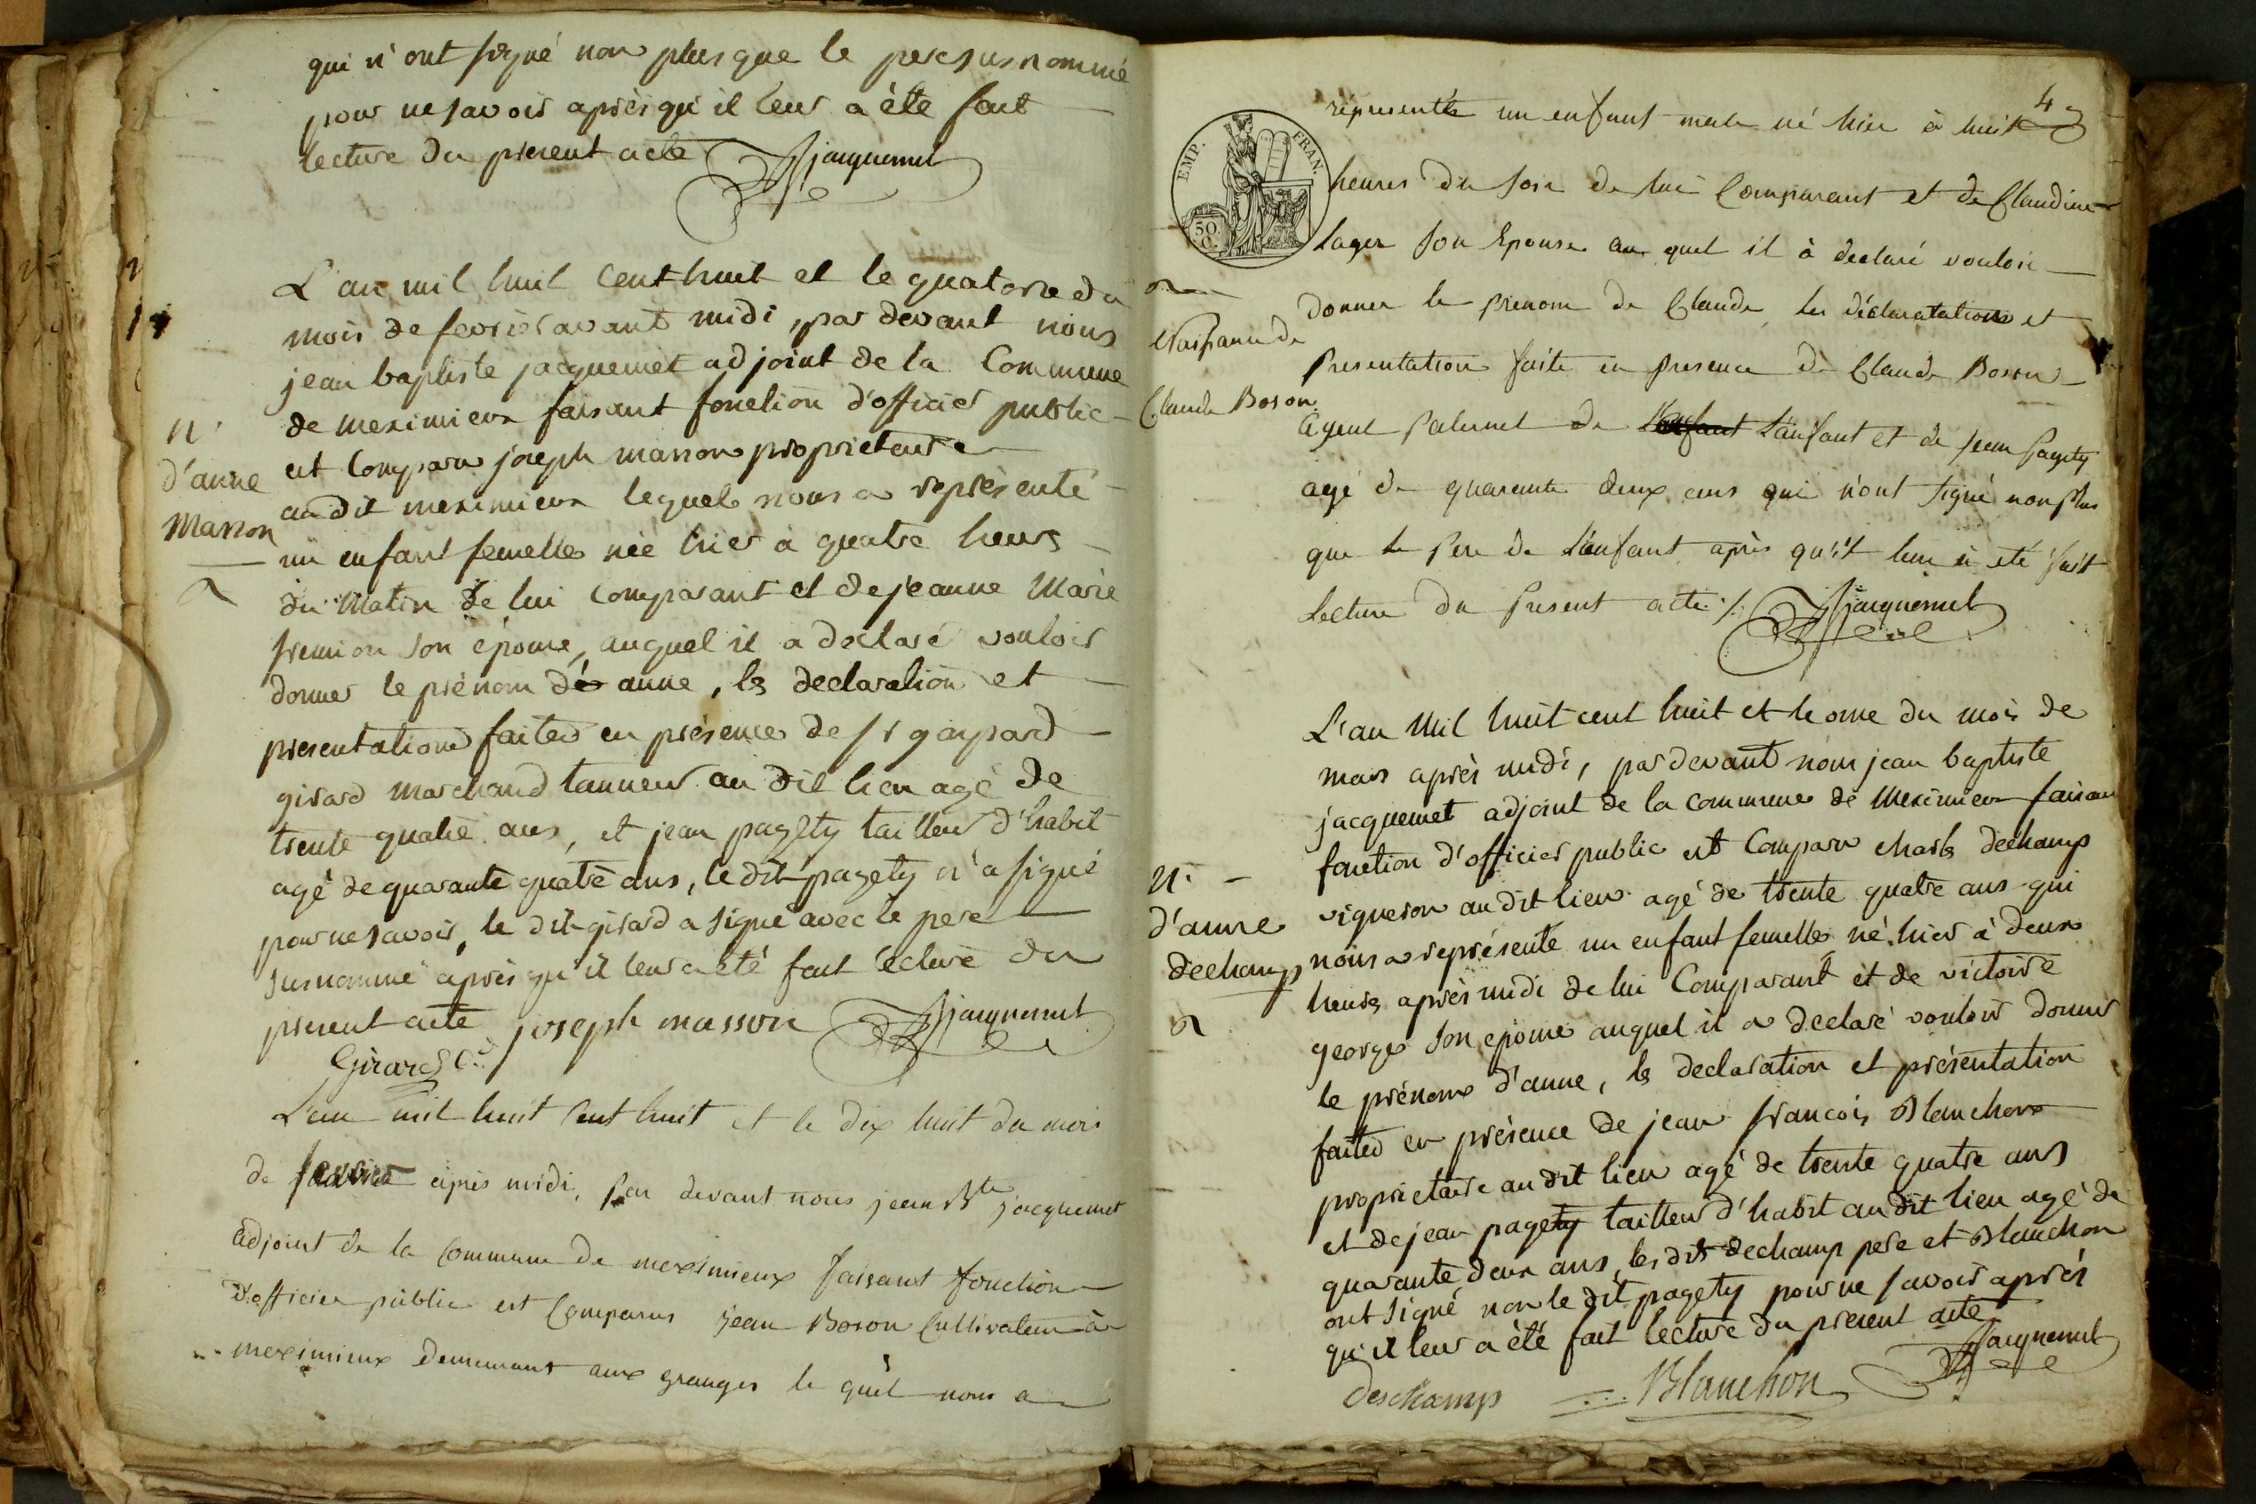 qui n'ont signé non plus que le pere susnommé
pour ne savoir après qu'il leur a été fait
lecture du present acte jjacquemet
L'an mil huit cent huit et le quatorze du
mois de fevrier avant midi, par devant nous
jean baptiste jacquemet adjoint de la Commune
de meximieux faisant fonction d'officier public
est comparu joseph masson proprietaire
au dit meximieux lequel nous a représenté
un enfant femelle née hier à quatre heures
du matin de lui comparant et de jeanne Marie
son épouse, auquel il a declaré vouloir
donner le prénom de anne, les declaration et
presentation faites en présence de sr gaspard
girard marchand tanneur au dit lieu agé de
trente quatre ans, et jean pagety tailleur d'habit
agé de quarante quatre ans, le dit pagety n'a signé
pour ne savoir, le dit girard a signé avec le pere
susnommé après qu'il leur a été fait lecture du
present acte joseph masson jjacquemet
Girard
n.
d'anne
Masson
L'an mil huit cent huit et le dix huit du mois
de fevrier après midi, par devant nous jean Bte jacquemet
adjoint de la Commune de meximieux faisant fonction
d'officier public est Comparus jean Boson Cultivateur à
meximieux demeurant aux granges le quel nous a
4
EMP. FRAN.
50 C.
représenté un enfant male né hier à huit
heures du soir de lui Comparant et de Claudine
Lager son Epouse au quel il à declaré vouloir
donner le prenom de Claude, les déclaratations et
Presentation faite en presence de Claude Boson
ayeul Paternel de L'enfant L'enfant et de jean Pagety
agé de quarante deux ans qui n'ont signé non plus
que le Pere de L'enfant après qu'il leur à été fait
Lecture du Present acte ./. jjacquemet
Naissance de
Claude Boson
L'an Mil huit cent huit et le onze du mois de
mars après midi, par devant nous jean baptiste
jacquemet adjoint de la commune de Meximieux faisant
fonction d'officier public est Comparu charles dechamp
vigneron au dit lieu agé de trente quatre ans qui
nous a représenté un enfant femelle né hier à deux
heures après midi de lui Comparant et de victoire
george son epouse auquel il a declaré vouloir donner
le prénom d'anne, les declaration et présentation
faites en présence de jean francois Blanchon
proprietaire au dit lieu agé de trente quatre ans
et de jean pagety tailleur d'habit au dit lieu agé de
quarante deux ans, les dits dechamp pere et Blanchon
ont signé non le dit pagety pour ne savoir après
qu'il leur a été fait lecture du present acte
jjacquemet
deschamps Blanchon
N.
d'anne
dechamp